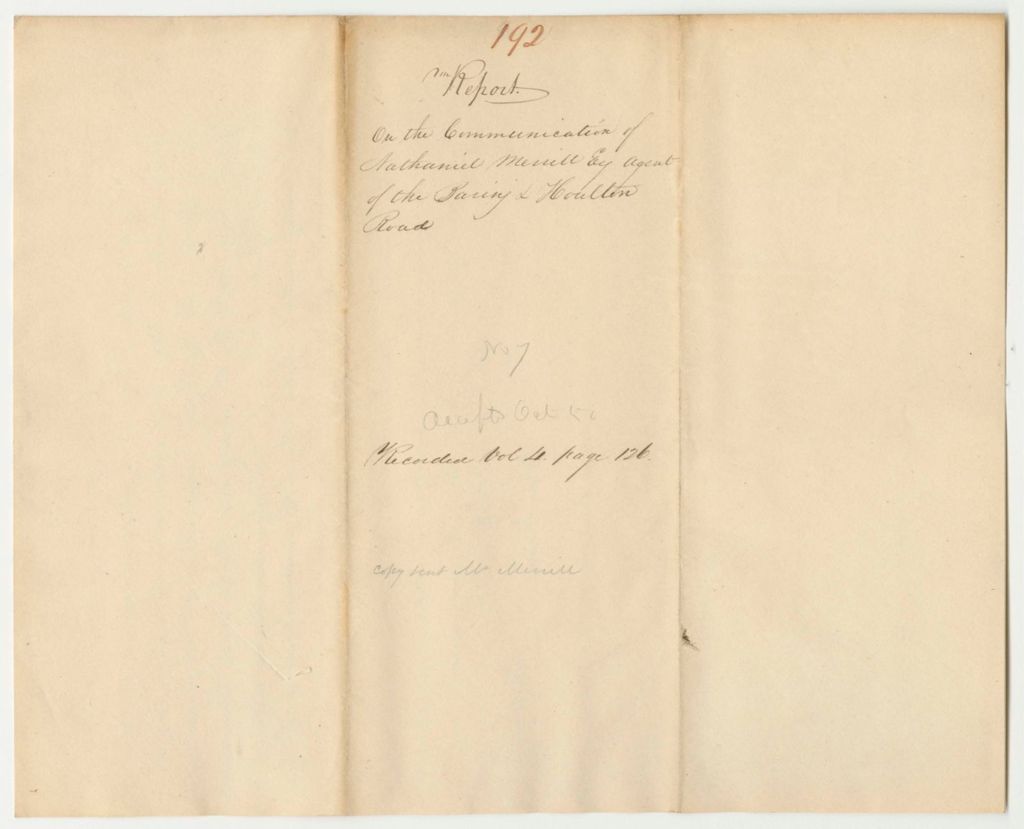 192
Report
On the Communication of
Nathaniel Merrill Esq Agent
of the Baring & Houlton
Road
No 7
Oct
Recorded Vol 4. page 126.
copy sent Mr Merrill